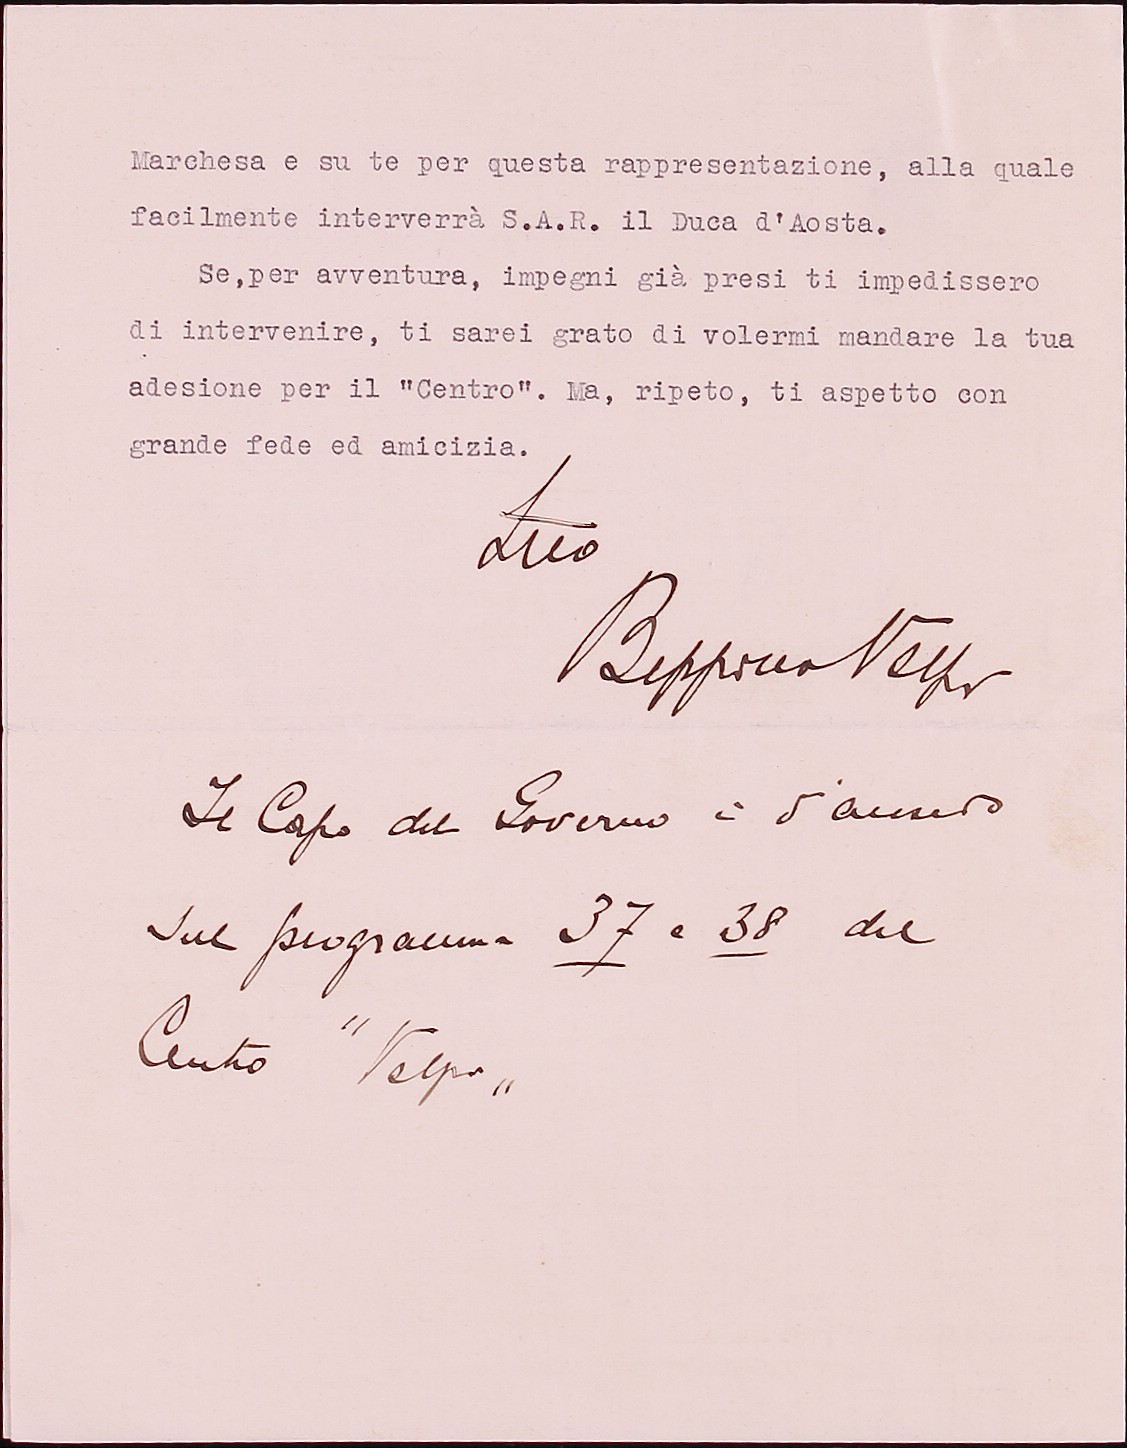 Marchesa e su te per questa rappresentazione, alla quale
facilmente interverrà S.A.R. il Duca d'Aosta.
Se,per avventura, impegni già presi ti impedissero
di intervenire, ti sarei grato di volermi mandare la tua
adesione per il "Centro". Ma, ripeto, ti aspetto con
grande fede ed amicizia.
tuo
Beppino Volpi
Il Capo del Governo è d'accordo
sul programma 37 e 38 del
Centro "Volpi„